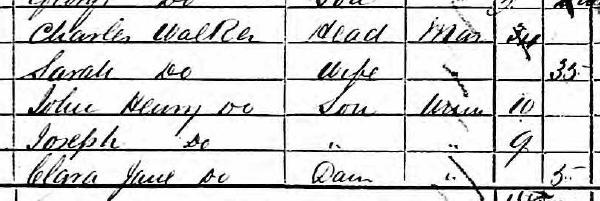 George Do Son
Charles Walker Head Mar 34
Sarah Do Wife " 35
John Henry Do Son Unm 10
Joseph Do " " 9
Clara Jane Do Daur " 5